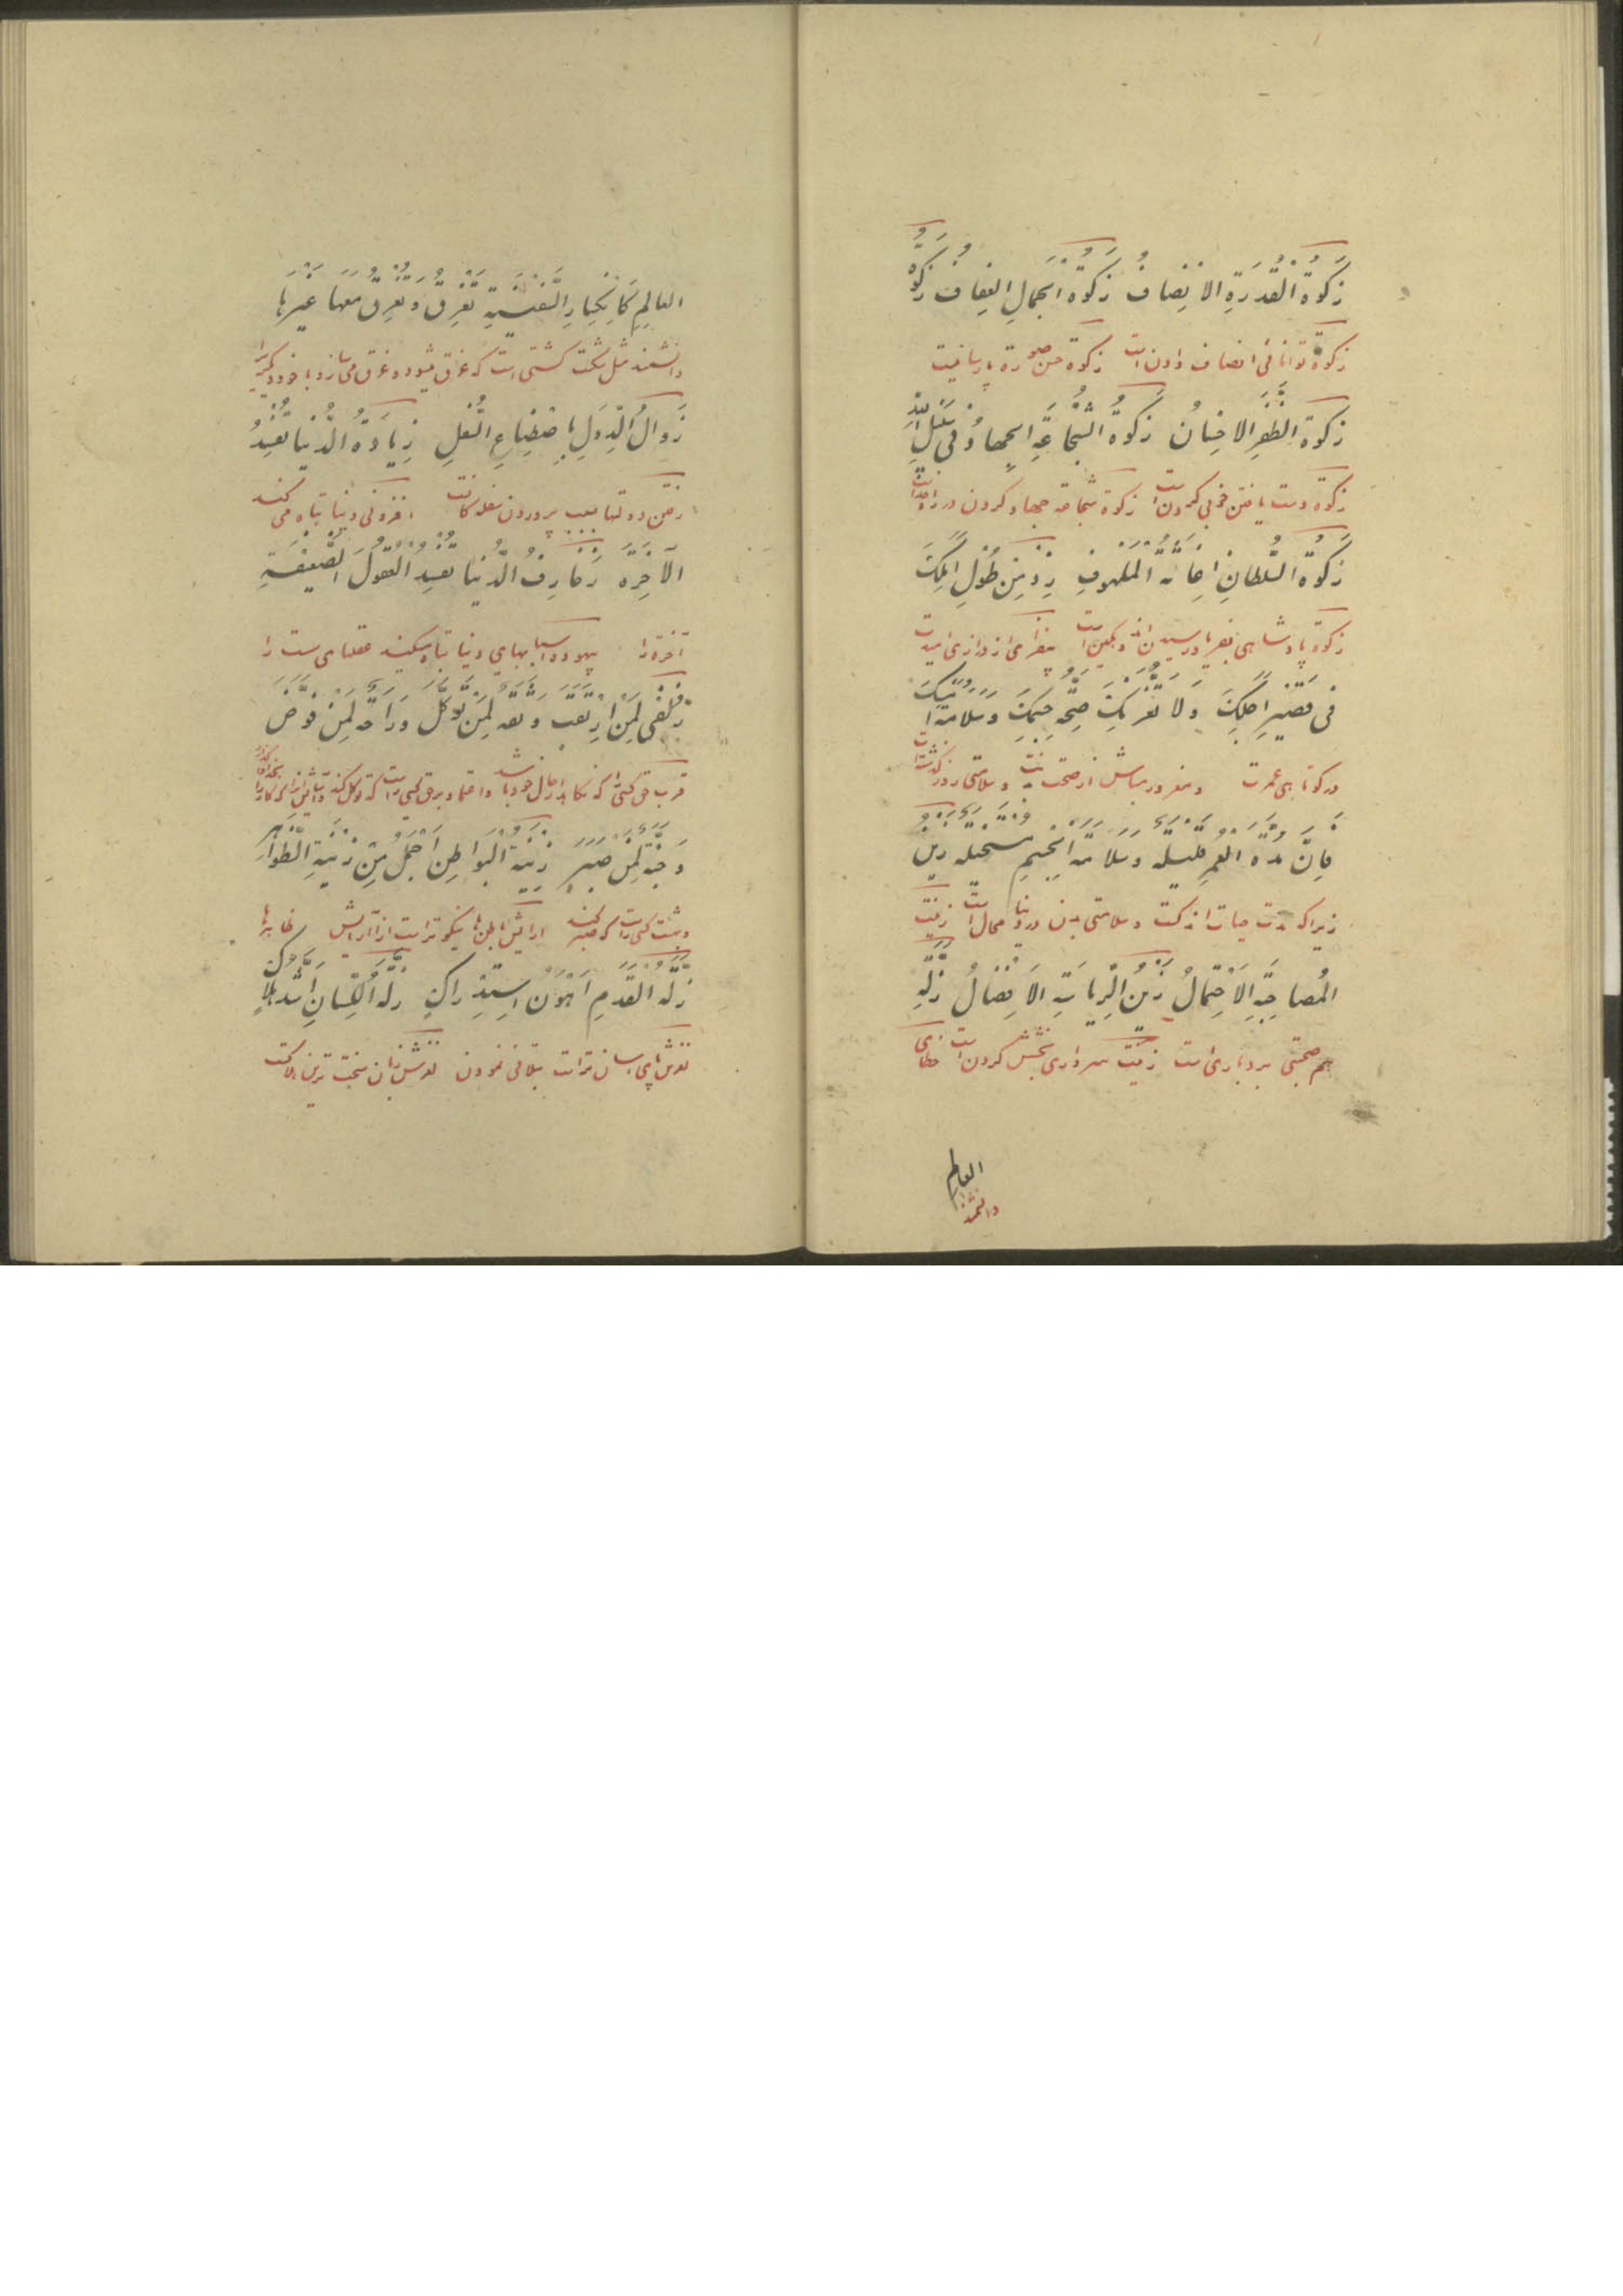 زَكوةُ الْقُدْرَةِ الْاِنْصافُ زَكوةُ الْجَمالِ الْعِفافُ زَكوةُ
زكوة توانائى انصاف دادن است زكوة حسن صورة پارسائيست
زَكوةُ الظَّفَرِ الْاِحْسانُ زَكوةُ الشَّجاعَةِ الْجِهادُ فى سَبيلِ اللهِ
زكوة دست يافتن خوبى كردن است زكوة شجاعة جهاد كردن در راه خداست
زَكوةُ السُّلْطانِ اِغاثَةُ الْمَلْهوفِ زِدْ مِنْ طُولِ اَمَلِكَ
زكوة پادشاهى بفرياد رسيدن اندوهگين است بيفزاى از درازى اميدت
فى قَصيرِ اَجَلِكَ وَلا تَغُرَّنَّكَ صِحَّةُ جِسْمِكَ وَسَلامَةُ اَمْسِكَ
در كوتاهى عمرت و مغرور مباش از صحت تنت و سلامتى روز گذشته‌ات
فَاِنَّ مُدَّةَ الْعُمْرِ قَليلَةٌ وَسَلامَةَ الْجِسْمِ مُسْتَحيلَةٌ زَيْنُ
زيرا كه مدت حيات اندكست و سلامتى بدن در دنيا محال است زينت
الْمُصاحَبَةِ الْاِحْتِمالُ زَيْنُ الرِّياسَةِ الْاِفْضالُ زَلَّةُ
هم صحبتى بردبارى است زينت سردارى بخشش كردن است خطاى
العالم
دانشمند
العالِمِ كَاِنْكِسارِ السَّفينَةِ تَغْرَقُ وَتُغْرِقُ مَعَها غَيْرَها
دانشمند مثل شكست كشتى است كه غرق ميشود و غرق مى‌سازد با خود ديگريرا
زَوالُ الدُّوَلِ بِاصْطِناعِ السُّفَلِ زِيادَةُ الدُّنْيا تُفْسِدُ
رفتن دولتها بسبب پروردن سفلگانست افزونى دنيا تباه مى كند
الْآخِرَةَ زَخارِفُ الدُّنْيا تُفْسِدُ الْعُقولَ الضَّعيفَةَ
آخرة را بيهوده اسبابهاى دنيا تباه ميكند عقلهاى سست را
زُلْفى لِمَنْ اِرْتَقَبَ وَثِقَةٌ لِمَنْ تَوَكَّلَ وَراحَةٌ لِمَنْ فَوَّضَ
وَجُنَّةٌ لِمَنْ صَبَرَ زينَةُ الْبَواطِنِ اَجْمَلُ مِنْ زينَةِ الظَّواهِرِ
و بهشت كسى راست كه صبر كند ارايش باطن‌ها نيكوتر است از آرايش ظاهرها
زَلَّةُ الْقَدَمِ اَهْوَنُ اسْتِدْراكٍ زَلَّةُ اللِّسانِ اَشَدُّ هَلاكٍ
لغزش پاى آسان تر است بتلافى نمودن لغزش زبان سخت ترين هلاكت